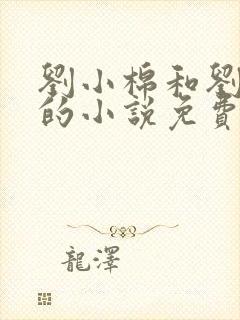 劉小棉和劉
的小說免費
龍澤